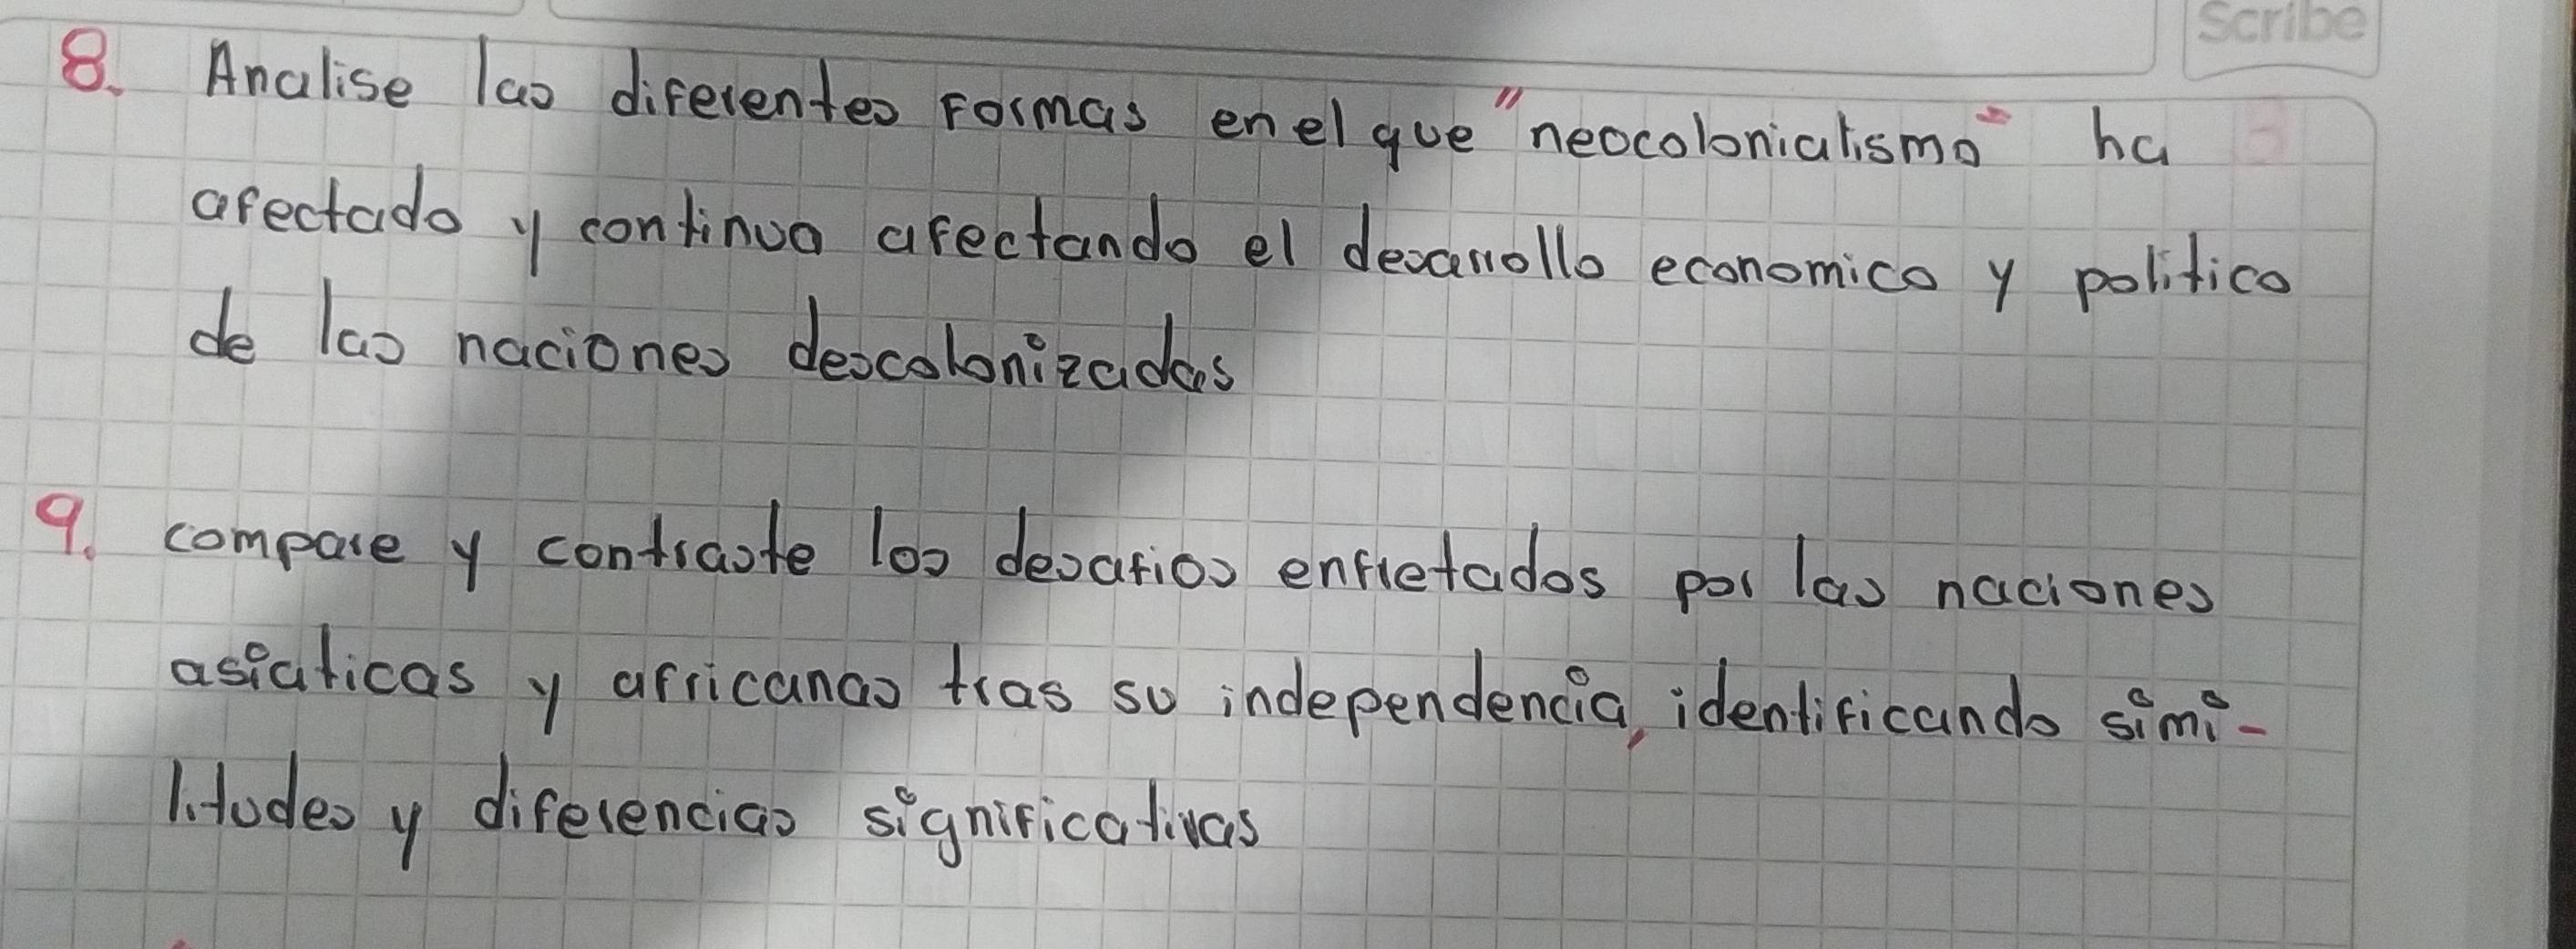 Scribe
8. Analise las diferentes formas en el que "neocolonialismo" ha
afectado y continua afectando el desarrollo economico y politico
de las naciones descolonizadas
9. compare y contraste los desafios enfretados por las naciones
asiaticas y africanas tras su independencia, identificando simi-
litudes y diferencias significativas